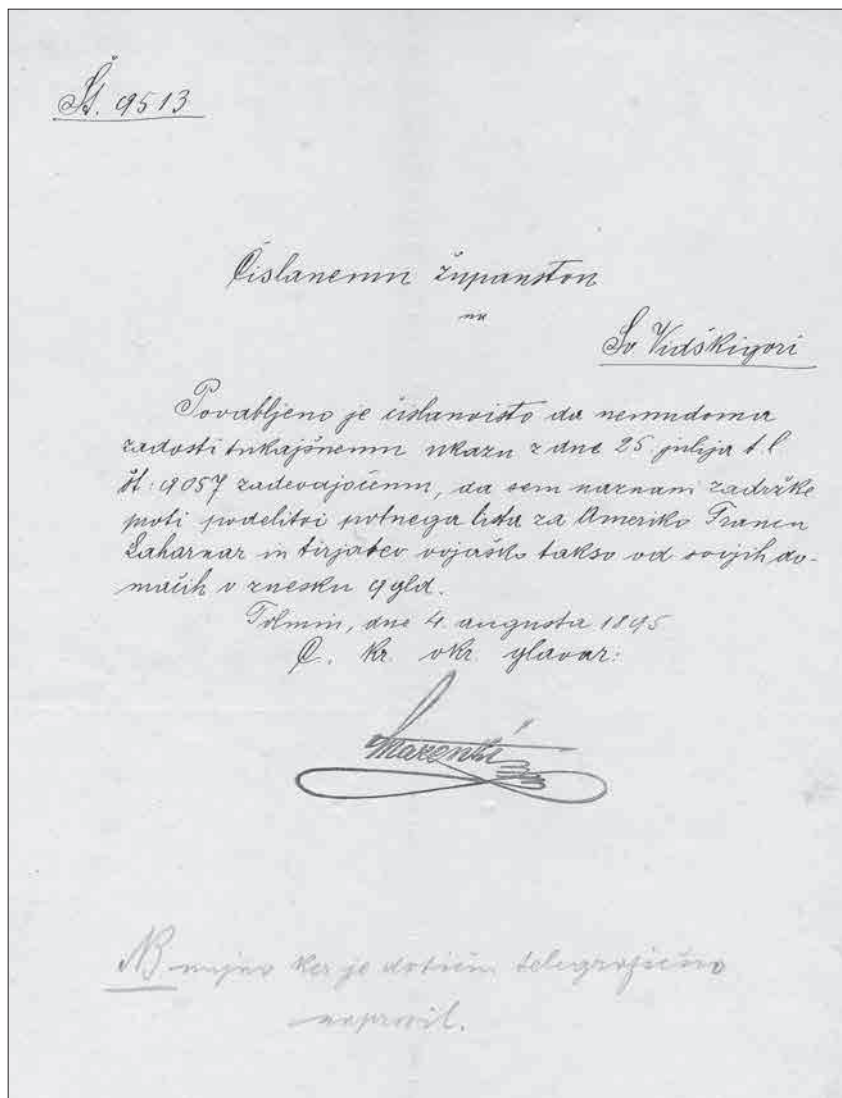 Št. 9513
Čislanemu županstvu
na
Sv Vidškigori
Povabljeno je čislanoisto da nemudoma
zadosti tukajšnemu ukazu z dne 25 julija t. l.
št. 9057 zadevajočemu, da sem naznani zadržke
proti podelitvi potnega lista za Ameriko Francu
Laharnar in tirjatev vojaško takso od svojih do-
mačih v znesku 9 gld.
Tolmin, dne 4. augusta 1895
C. kr. okr. glavar:
NB nujno ker je dotičn. telegrafično
naprosil.